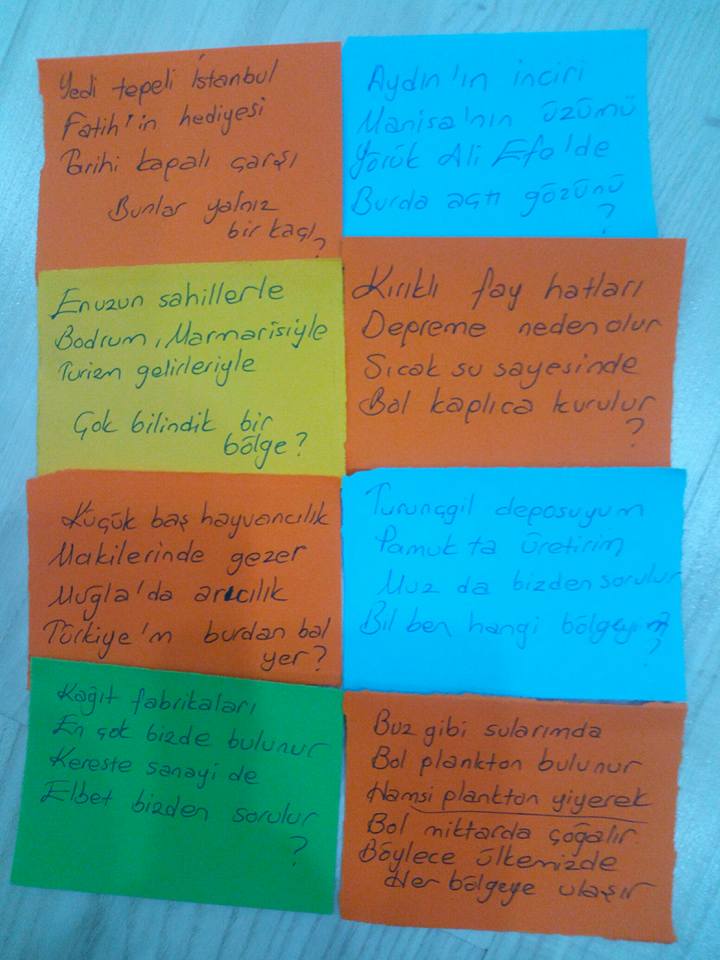 Yedi tepeli İstanbul
Fatih'in hediyesi
Tarihi kapalı çarşı
Bunlar yalnız
bir kaçı?
Aydın'ın inciri
Manisa'nın üzümü
Yörük Ali Efe'de
Burda açtı gözünü
?
En uzun sahillerle
Bodrum, Marmarisiyle
Turizm gelirleriyle
Çok bilindik bir
bölge?
Kırıklı fay hatları
Depreme neden olur
Sıcak su sayesinde
Bol kaplıca kurulur
?
Küçük baş hayvancılık
Makilerinde gezer
Muğla'da arıcılık
Türkiye'm burdan bal
yer?
Turunçgil deposuyum
Pamuk ta üretirim
Muz da bizden sorulur
Bil ben hangi bölgeyim?
?
Kağıt fabrikaları
En çok bizde bulunur
Kereste sanayi de
Elbet bizden sorulur
?
Buz gibi sularımda
Bol plankton bulunur
Hamsi plankton yiyerek
Bol miktarda çoğalır
Böylece ülkemizde
Her bölgeye ulaşır